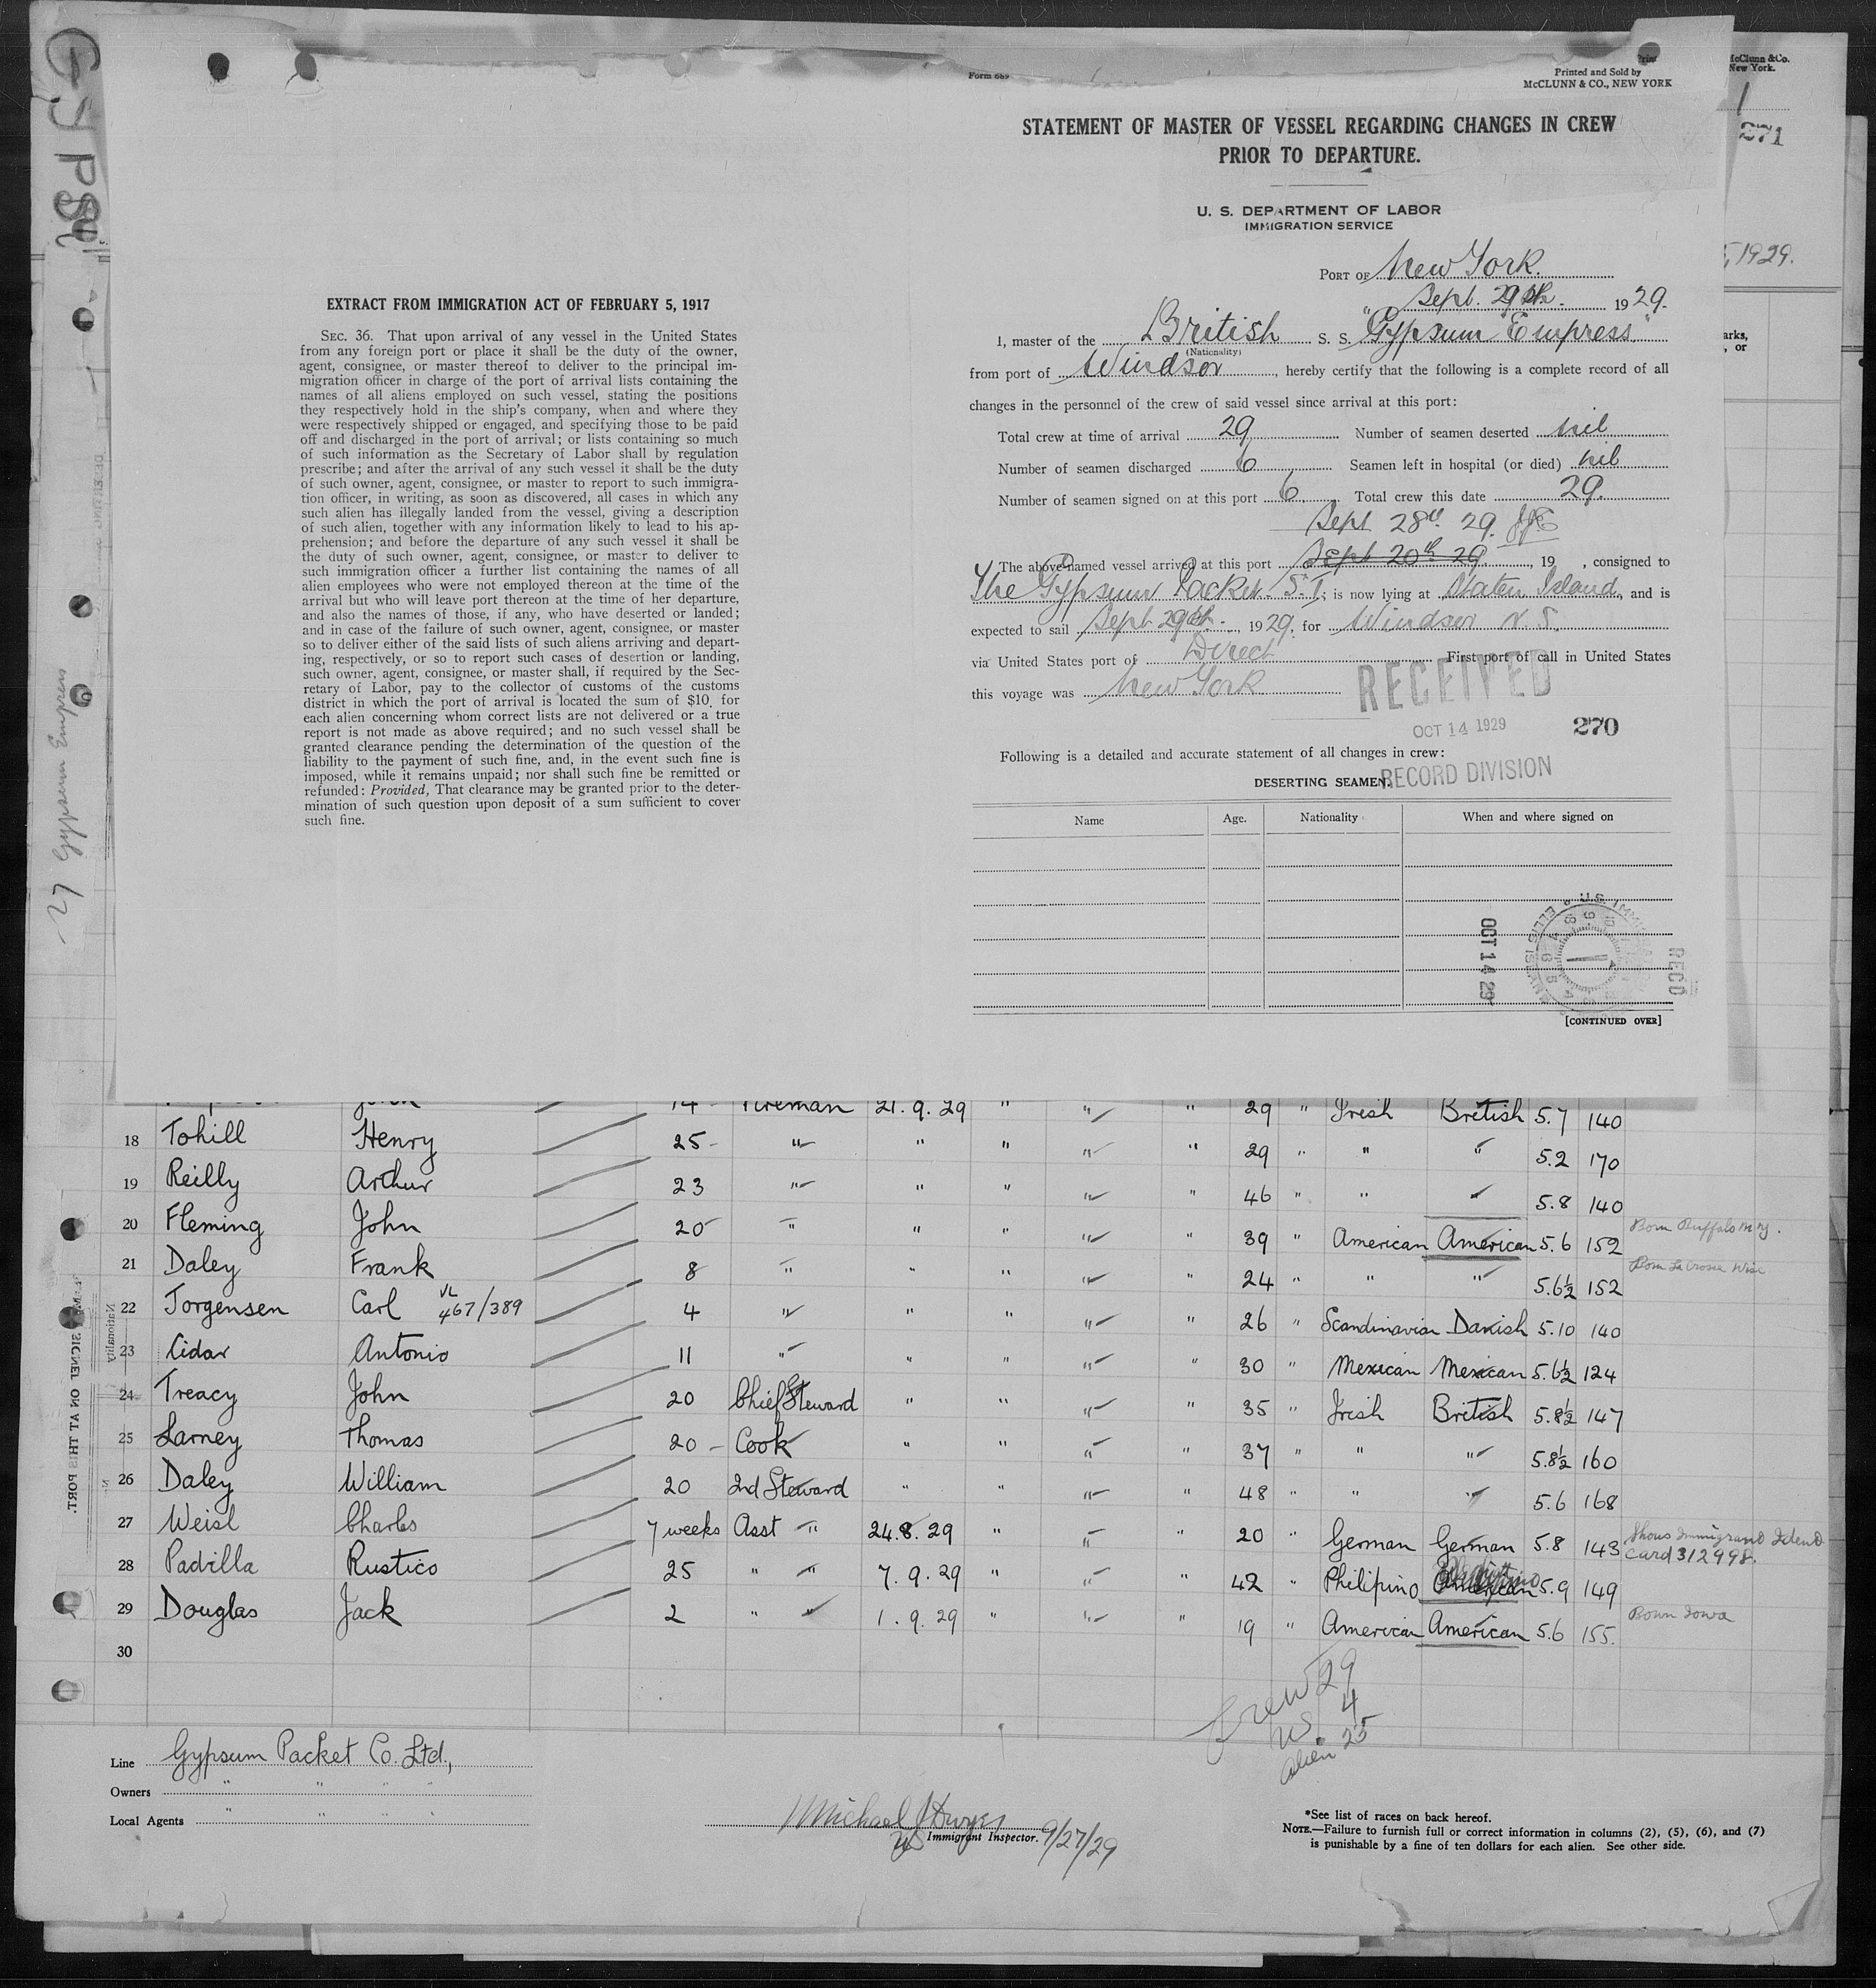 Gypsy
27 Gypsum Empress
McClunn & Co.
New York.
1
271
, 1929.
arks,
, or
Form 689
Printed and Sold by
McCLUNN & CO., NEW YORK
STATEMENT OF MASTER OF VESSEL REGARDING CHANGES IN CREW
PRIOR TO DEPARTURE.
U. S. DEPARTMENT OF LABOR
IMMIGRATION SERVICE
PORT OF New York.
Sept. 29th. 1929.
I, master of the British S. S. "Gypsum Empress"
(Nationality)
from port of Windsor, hereby certify that the following is a complete record of all
changes in the personnel of the crew of said vessel since arrival at this port:
Total crew at time of arrival 29 Number of seamen deserted nil
Number of seamen discharged 6 Seamen left in hospital (or died) nil
Number of seamen signed on at this port 6 Total crew this date 29.
Sept 28th 29.
The above-named vessel arrived at this port Sept 20th 29., 19 , consigned to
The Gypsum Packet S.T; is now lying at Staten Island, and is
expected to sail Sept 29th. 1929, for Windsor N. S.
via United States port of Direct First port of call in United States
this voyage was New York
RECEIVED
OCT 14 1929
270
Following is a detailed and accurate statement of all changes in crew:
RECORD DIVISION
DESERTING SEAMEN.
Name Age. Nationality When and where signed on
OCT 14 29
REC'D
[CONTINUED OVER]
EXTRACT FROM IMMIGRATION ACT OF FEBRUARY 5, 1917
SEC. 36. That upon arrival of any vessel in the United States
from any foreign port or place it shall be the duty of the owner,
agent, consignee, or master thereof to deliver to the principal im-
migration officer in charge of the port of arrival lists containing the
names of all aliens employed on such vessel, stating the positions
they respectively hold in the ship's company, when and where they
were respectively shipped or engaged, and specifying those to be paid
off and discharged in the port of arrival; or lists containing so much
of such information as the Secretary of Labor shall by regulation
prescribe; and after the arrival of any such vessel it shall be the duty
of such owner, agent, consignee, or master to report to such immigra-
tion officer, in writing, as soon as discovered, all cases in which any
such alien has illegally landed from the vessel, giving a description
of such alien, together with any information likely to lead to his ap-
prehension; and before the departure of any such vessel it shall be
the duty of such owner, agent, consignee, or master to deliver to
such immigration officer a further list containing the names of all
alien employees who were not employed thereon at the time of the
arrival but who will leave port thereon at the time of her departure,
and also the names of those, if any, who have deserted or landed;
and in case of the failure of such owner, agent, consignee, or master
so to deliver either of the said lists of such aliens arriving and depart-
ing, respectively, or so to report such cases of desertion or landing,
such owner, agent, consignee, or master shall, if required by the Sec-
retary of Labor, pay to the collector of customs of the customs
district in which the port of arrival is located the sum of $10 for
each alien concerning whom correct lists are not delivered or a true
report is not made as above required; and no such vessel shall be
granted clearance pending the determination of the question of the
liability to the payment of such fine, and, in the event such fine is
imposed, while it remains unpaid; nor shall such fine be remitted or
refunded: Provided, That clearance may be granted prior to the deter-
mination of such question upon deposit of a sum sufficient to cover
such fine.
14 Fireman 21. 9. 29 " " " 29 " Irish British 5.7 140
18 Tohill Henry 25 " " " " " 29 " " " 5.2 170
19 Reilly Arthur 23 " " " " " 46 " " 5.8 140
20 Fleming John 20 " " " " " 39 " American American 5.6 152 Born Buffalo N.Y.
21 Daley Frank 8 " " " " " 24 " " " 5.6½ 152 Born La Crosse Wis
22 Jorgensen Carl VL 467/389 4 " " " " " 26 " Scandinavian Danish 5.10 140
23 Cidar Antonio 11 " " " " " 30 " Mexican Mexican 5.6½ 124
24 Treacy John 20 Chief Steward " " " " 35 " Irish British 5.8½ 147
25 Larney Thomas 20 Cook " " " " 37 " " " 5.8½ 160
26 Daley William 20 2nd Steward " " " " 48 " " " 5.6 168
27 Weisl Charles 7 weeks Asst " 24.8.29 " " " 20 " German German 5.8 143 Shows Immigrant Ident Card 312998.
28 Padilla Rustico 25 " " 7. 9. 29 " " " 42 " Philipino American 5.9 149
29 Douglas Jack 2 " " 1. 9. 29 " " " 19 " American American 5.6 155. Born Iowa
30
Crew 29
US. 4
Alien 25
Line Gypsum Packet Co. Ltd.,
Owners " " " "
Local Agents " " " "
Michael J Dwyer
US Immigrant Inspector. 9/27/29
*See list of races on back hereof.
NOTE.—Failure to furnish full or correct information in columns (2), (5), (6), and (7)
is punishable by a fine of ten dollars for each alien. See other side.